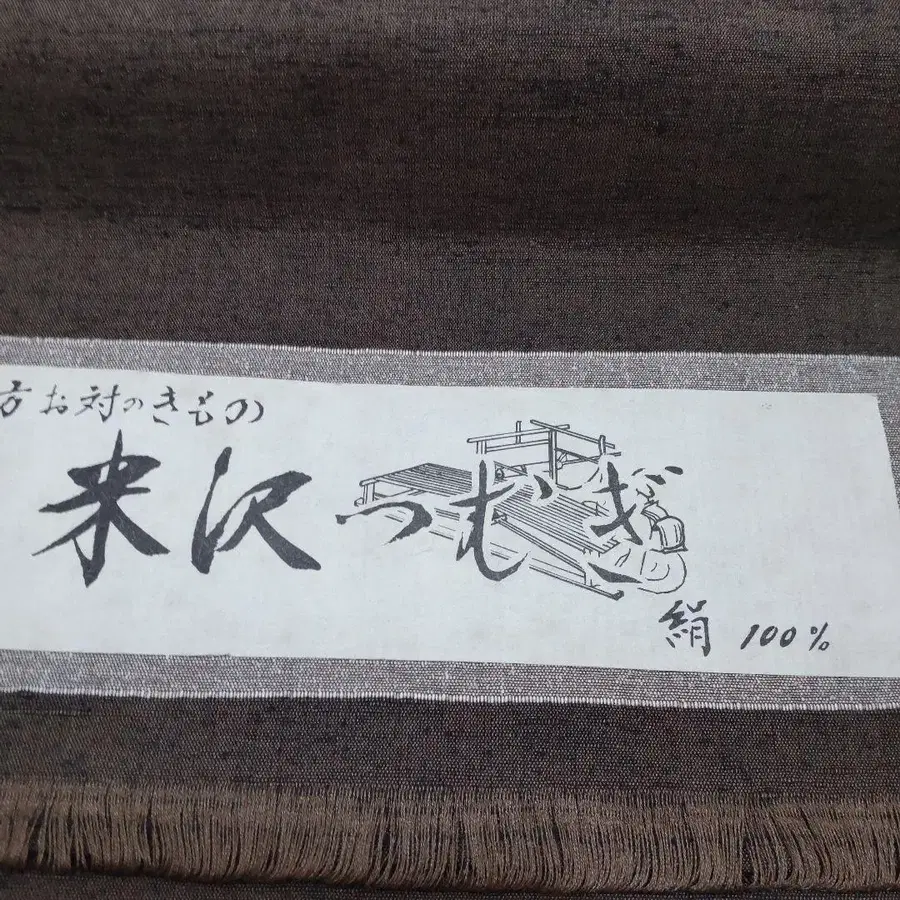 方お対のきもの
米沢つむぎ
絹 100%